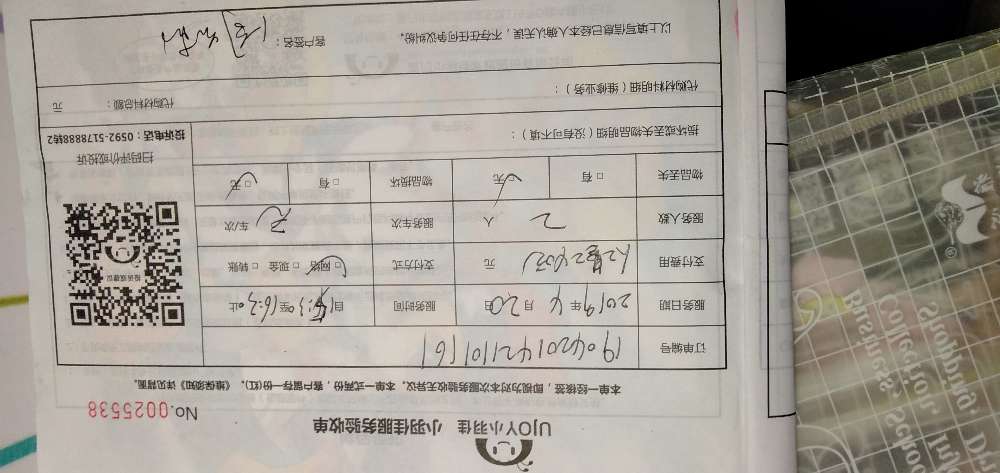 UJOY小羽佳 小羽佳服务验收单
No.0025538
本单一经核签，即视为对本次服务验收无异议。本单一式两份，客户留存一份(红)。《维保须知》详见背面。
订单编号 190420142110161
服务日期 2019年4月20日 服务时间 自 至16:30止
支付费用 元 支付方式 □网络 □现金 □转账
服务人数 2 人 服务车次 车/次
物品丢失 □有 □无 物品损坏 □有 □无
投诉或建议
扫码评价或投诉
投诉电话：0592-5178888转2
损坏或丢失物品明细（没有可不填）：
代购材料明细（维修业务）： 代购材料总额： 元
以上填写信息已经本人确认无误，不存在任何争议纠纷。 客户签名：
Shopping.
Collection.
Business